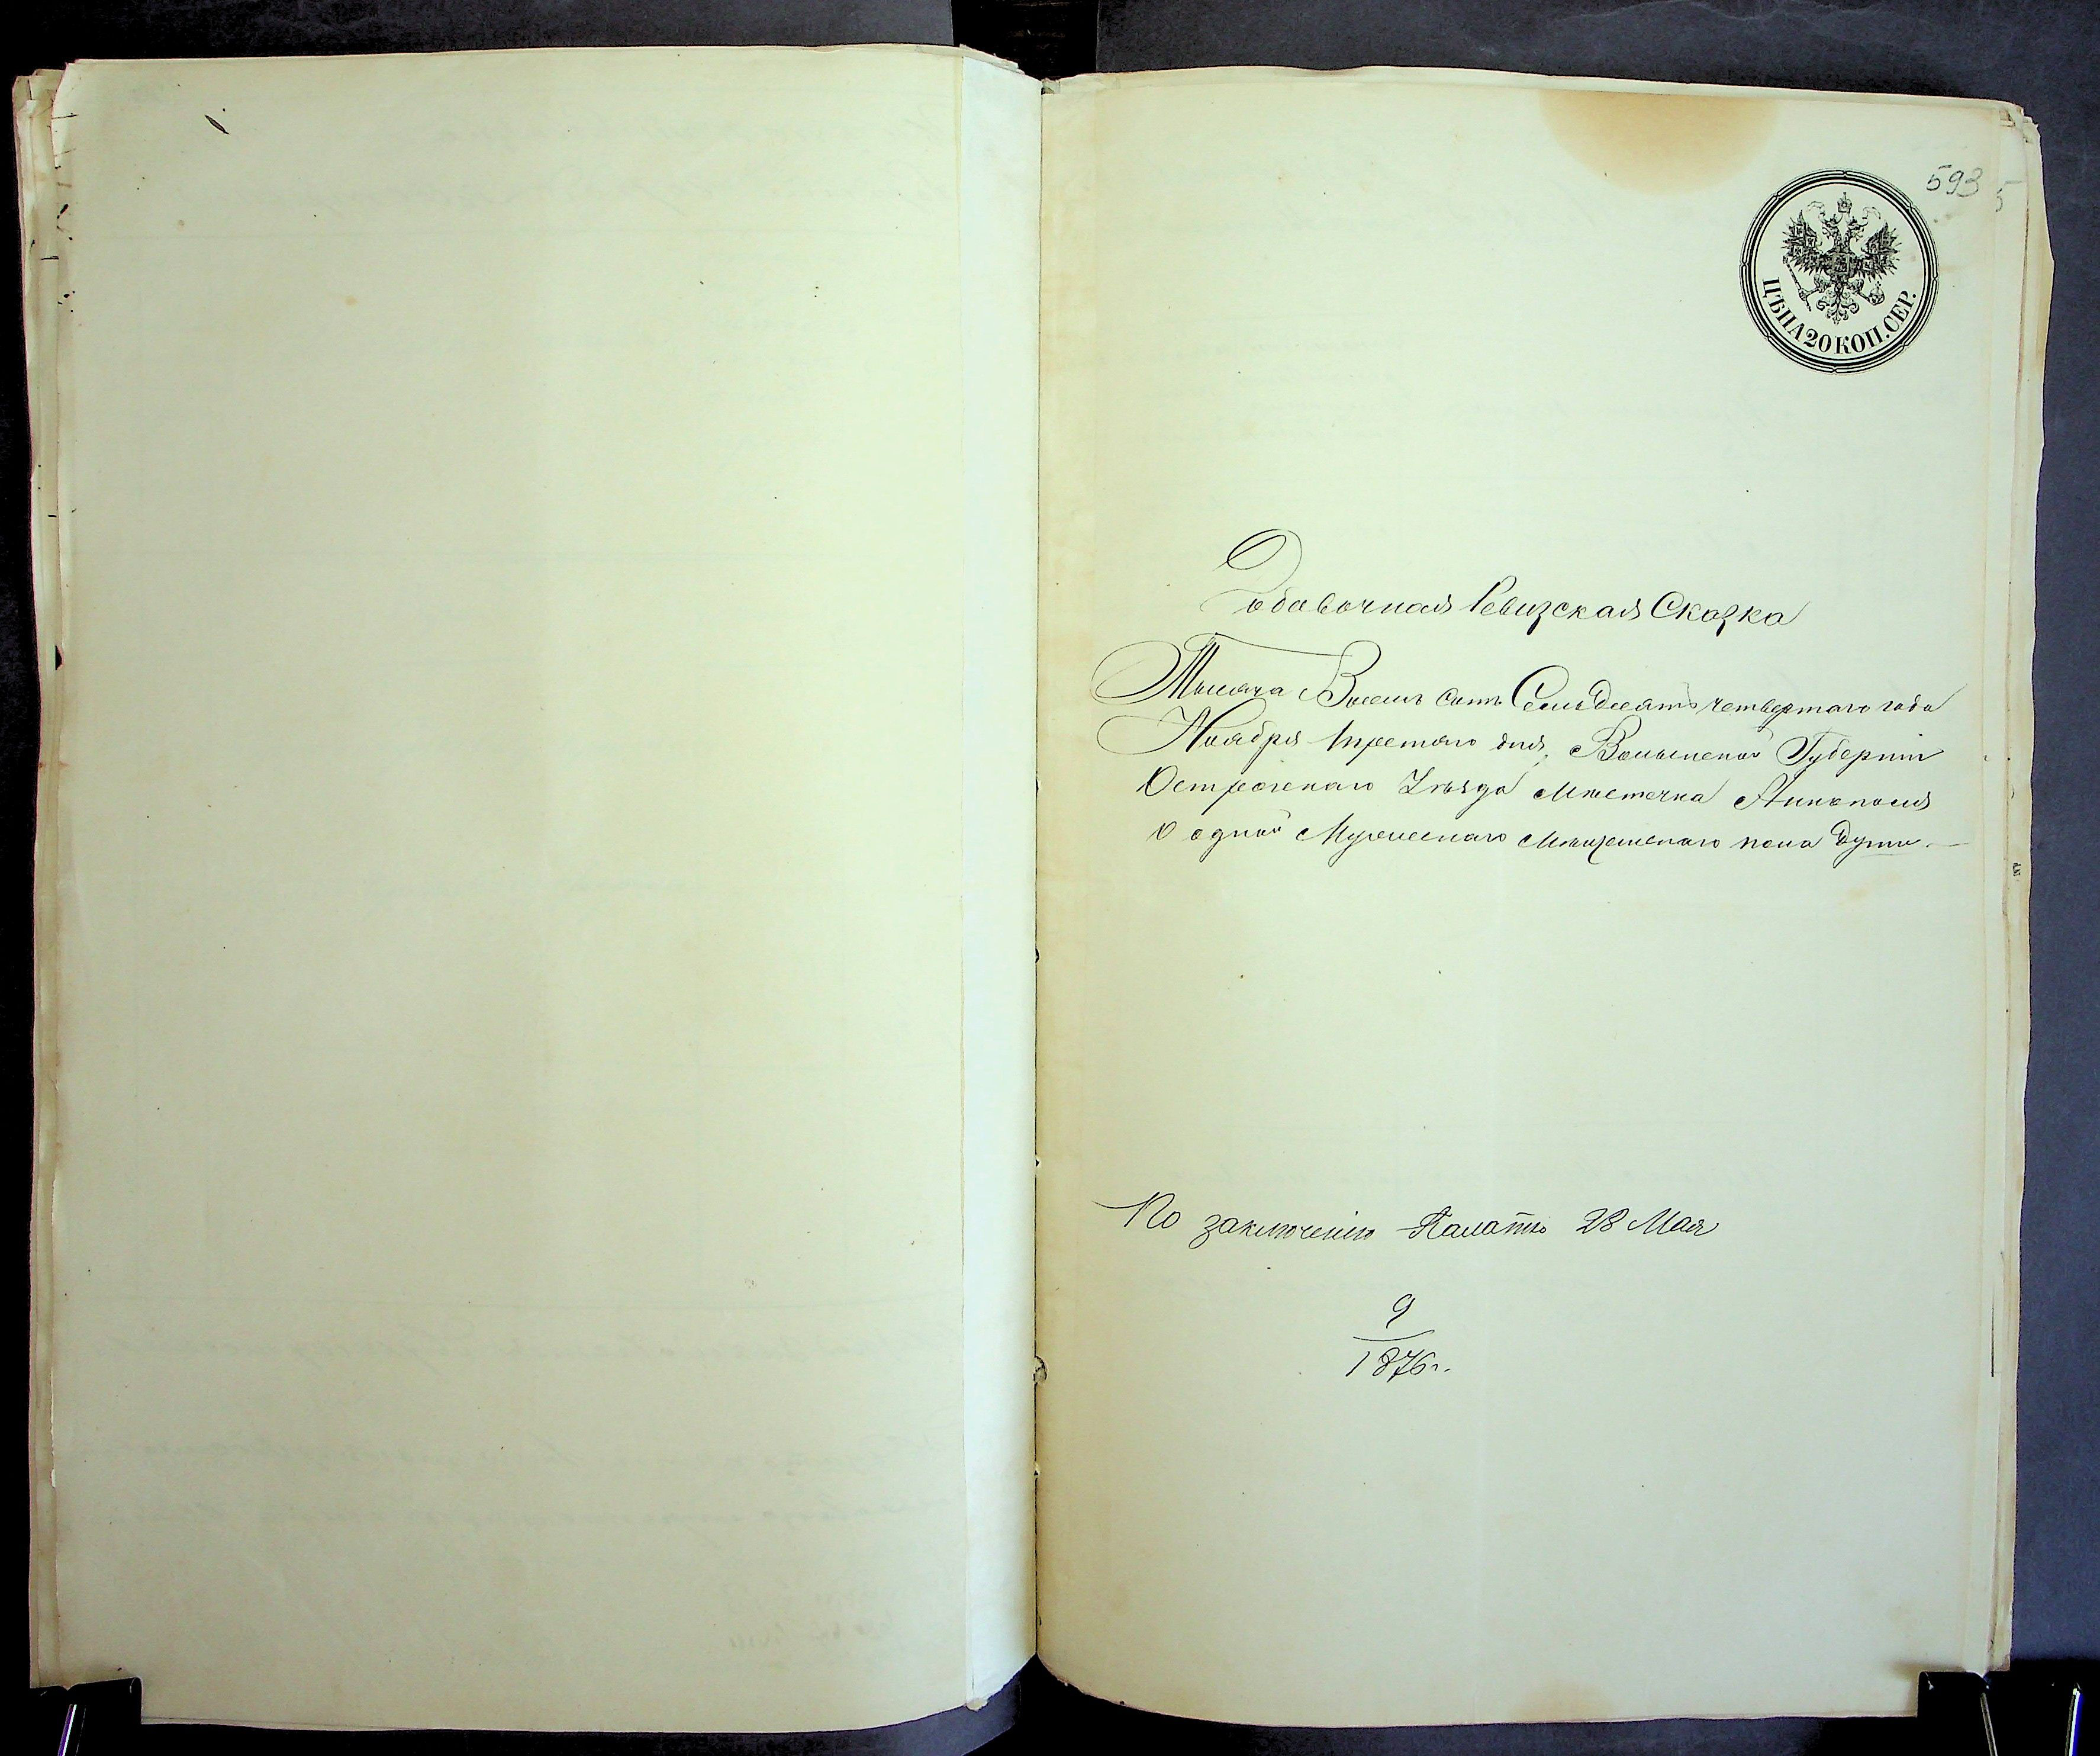 593
5
ЦѢНА 20 КОП. СЕР.
Добавочная Ревизская Сказка
Тысяча Восемь сотъ Семьдесятъ четвертаго года
Ноября третяго дня, Волынской Губерніи
Острожскаго Уѣзда Мѣстечка Аннополя
О одной Мужескаго Мѣщанскаго пола души.
По заключенію Палаты 28 Мая
9
1876 г.